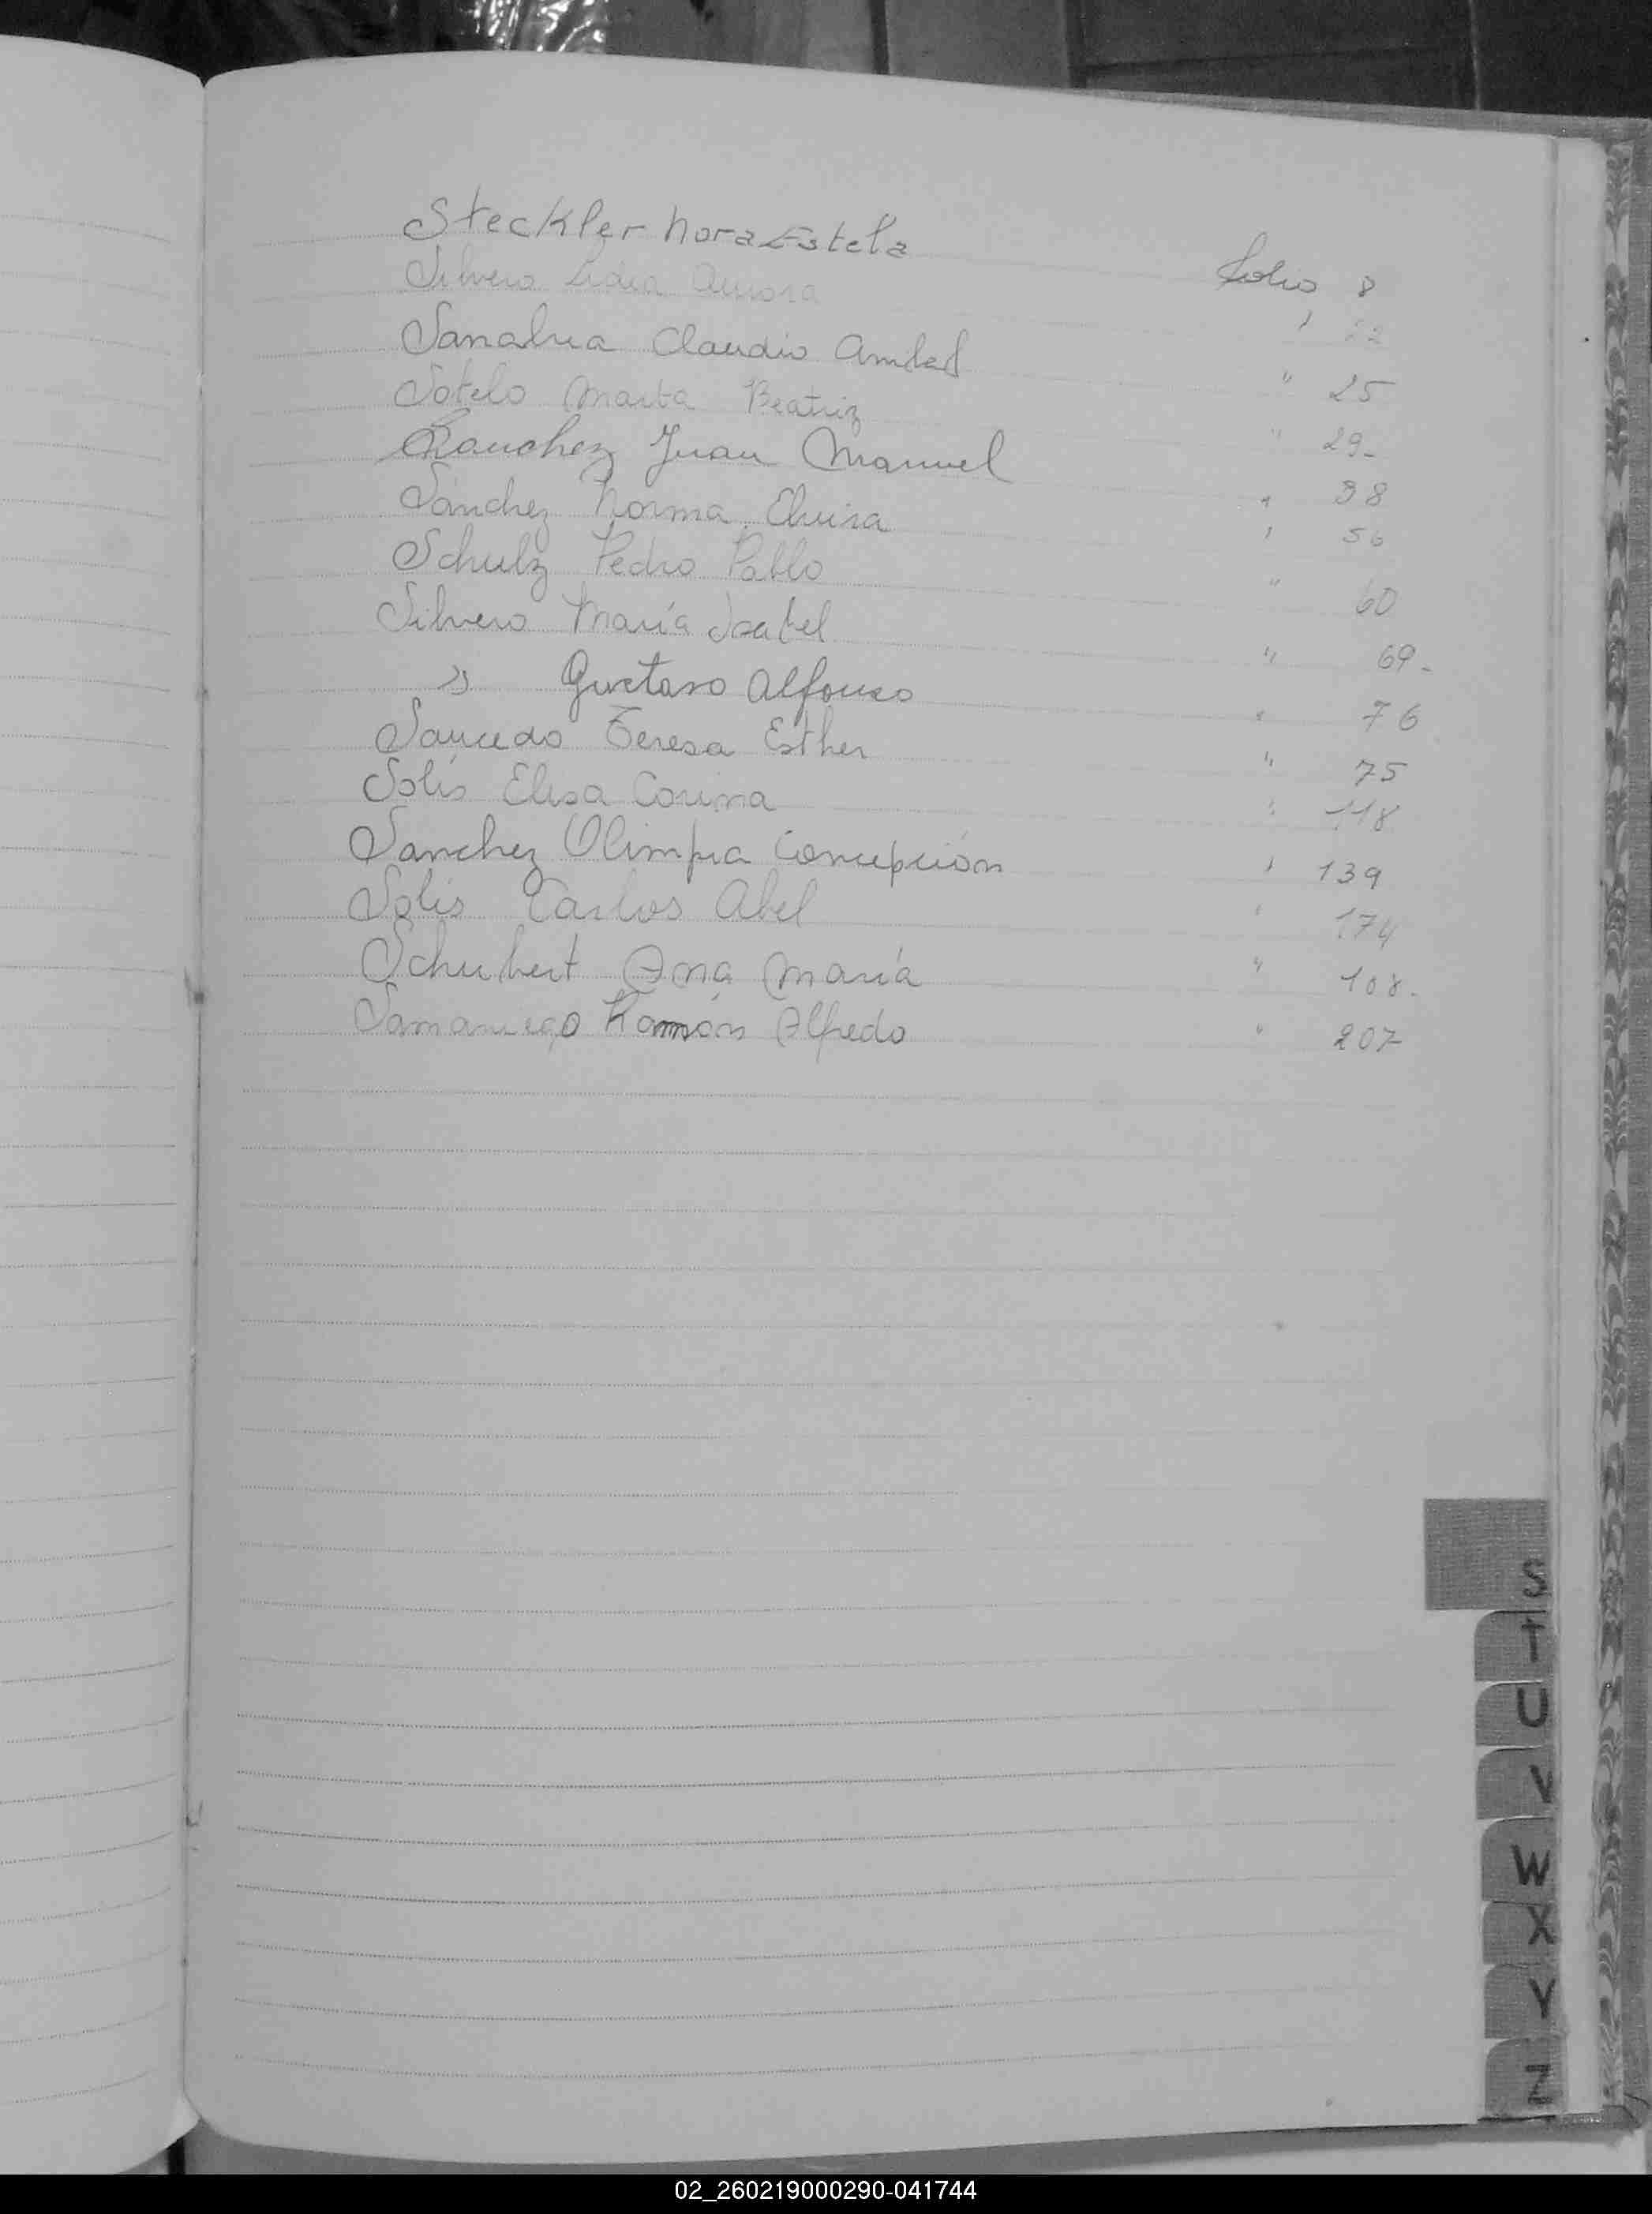 Steckler Nora Estela folio 8
Silvero Lidia Aurora " 22
Sanabria Claudio " 25
Sotelo Marta Beatriz " 29-
Sanchez Juan Manuel " 38
Sánchez Norma Elvira " 56
Schulz Pedro Pablo " 60
Silvero María Isabel " 69-
" Gustavo Alfonso " 76
Saucedo Teresa Esther " 75
Solís Elisa Corina " 118
Sanchez Olimpia Concepción " 139
Solis Carlos Abel " 174
Schubert Ana María " 108.
Samaniego Ramón Alfredo " 207
S
T
U
V
W
X
Y
Z
02_260219000290-041744